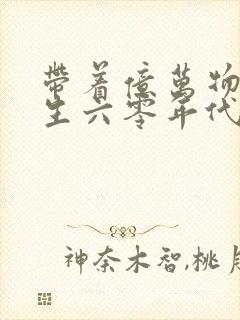 帶着億萬物
生六零年代
神奈木智,桃月